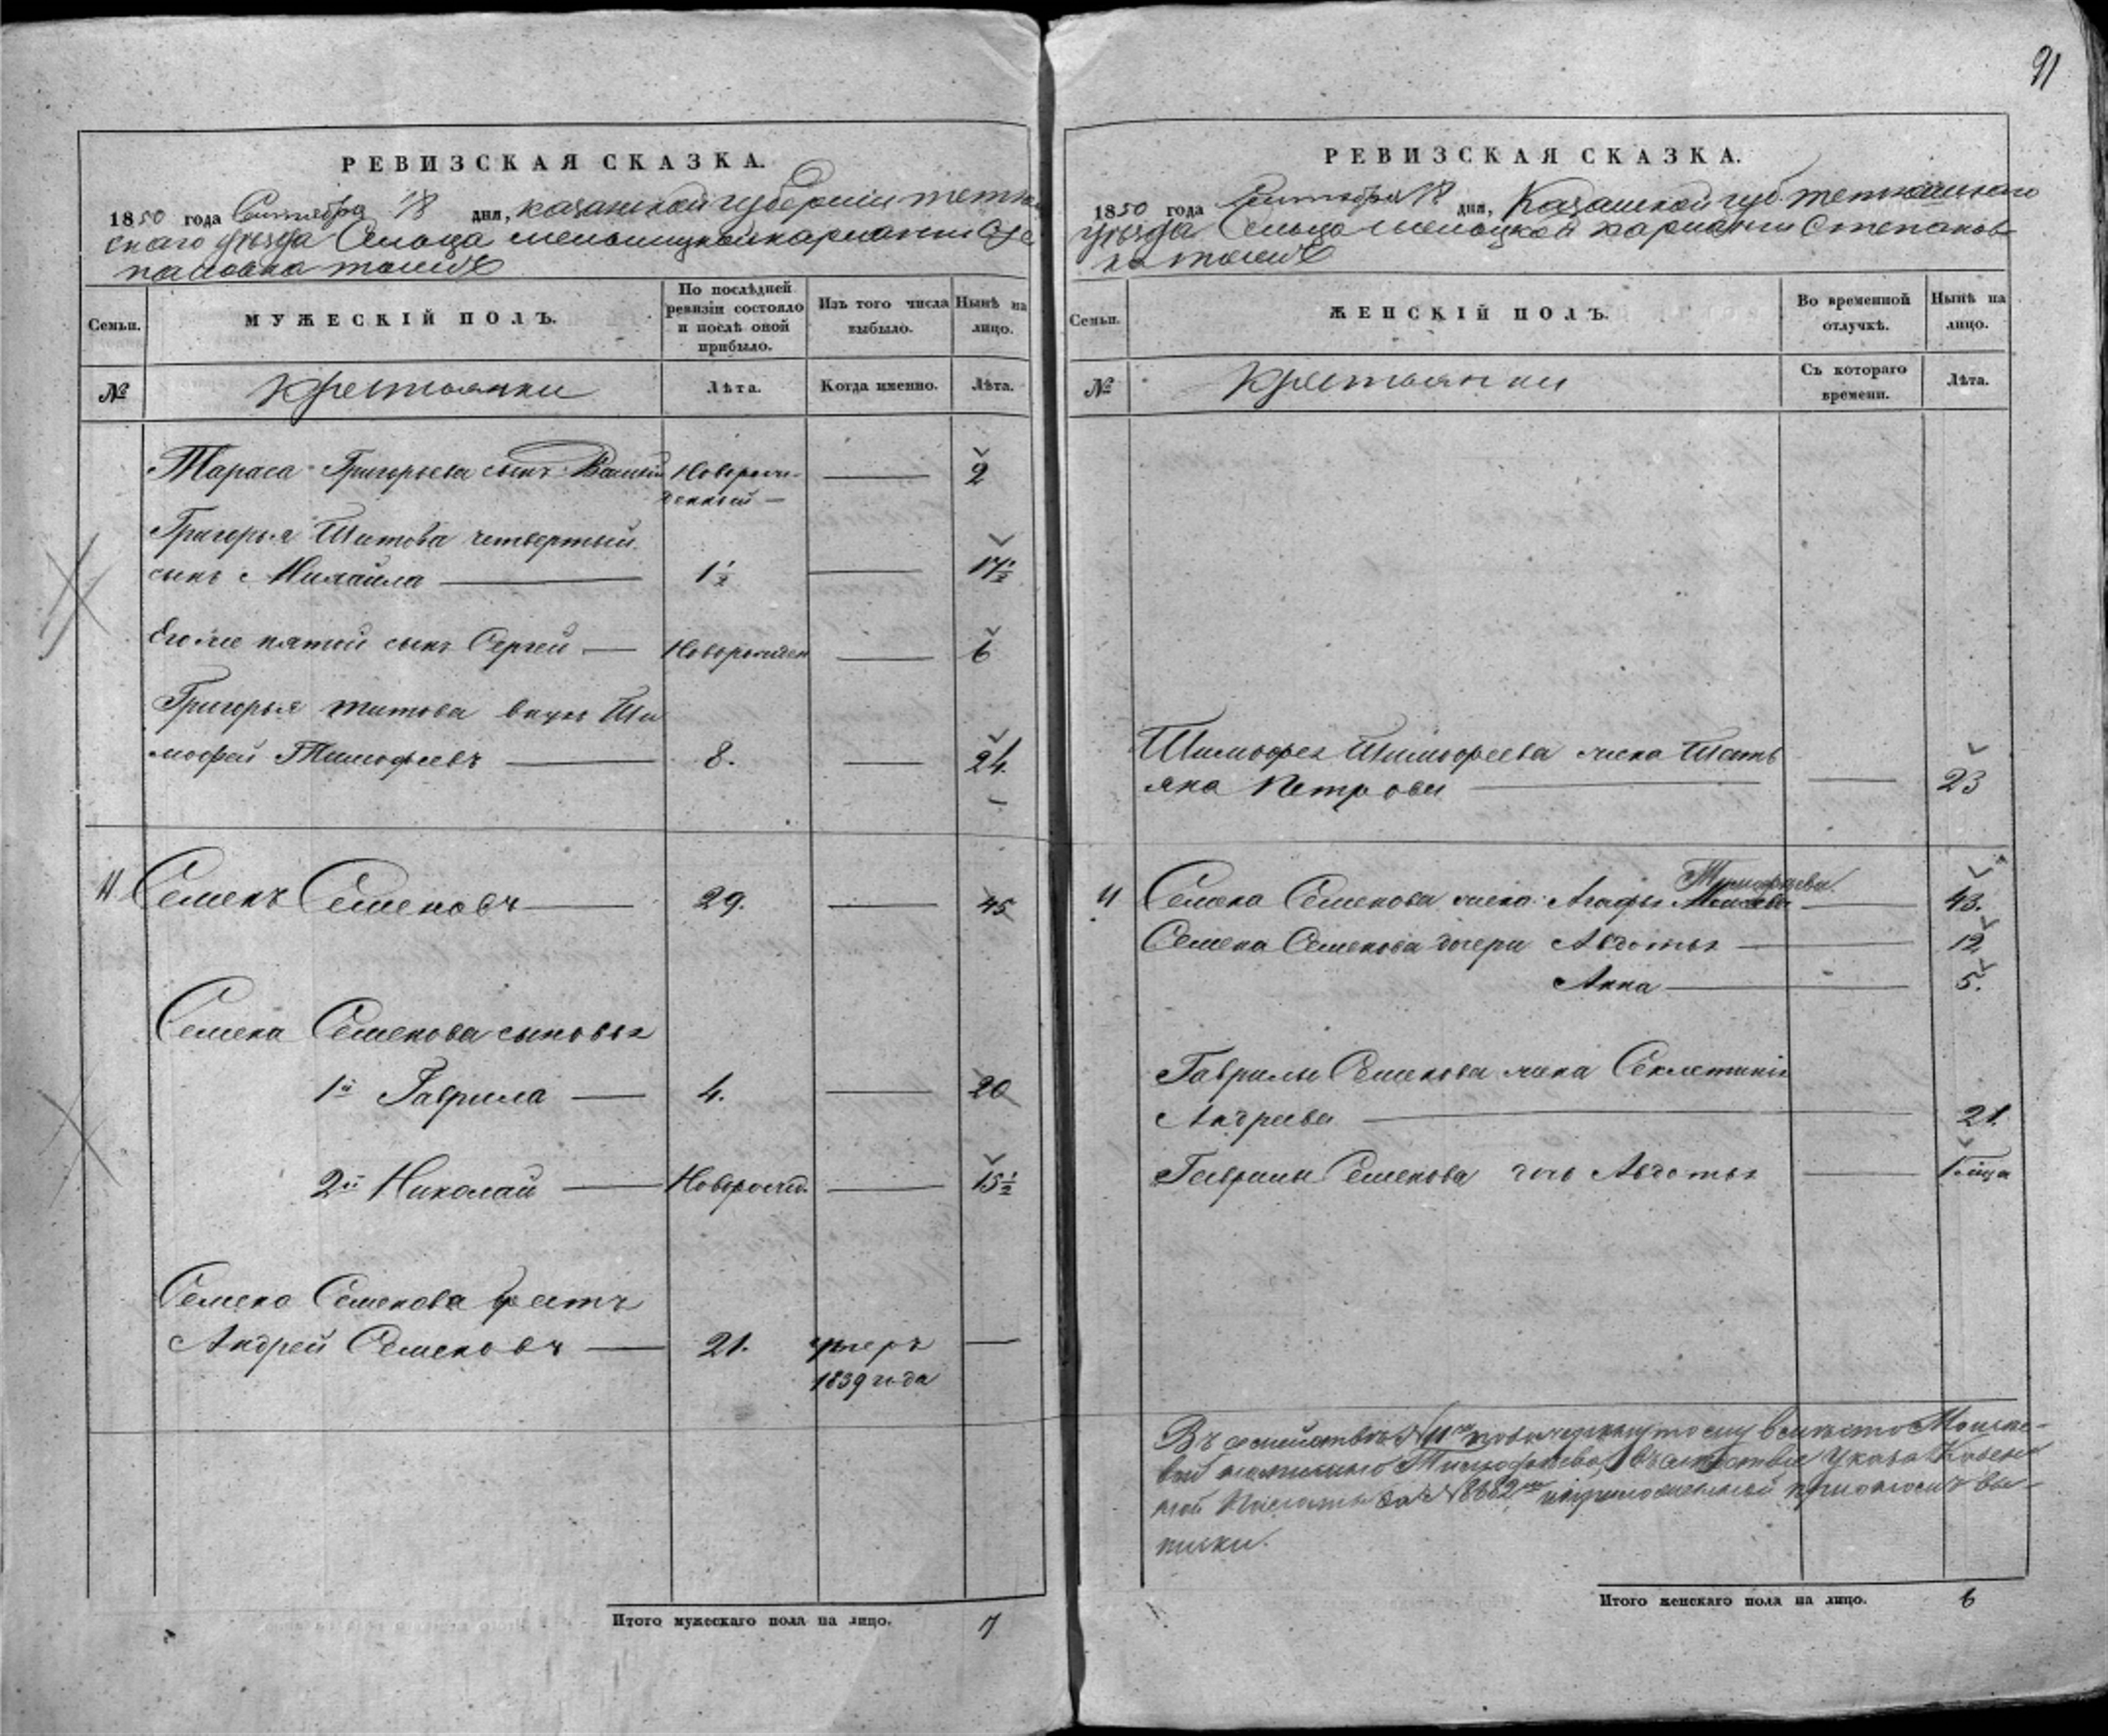 91
РЕВИЗСКАЯ СКАЗКА.
1850 года Сентября 18 дня, казанской губернiи тетю
скаго уезда Сельца
повка тожъ
Семьи. МУЖЕСКIЙ ПОЛЪ. По послѣдней ревизiи состояло и послѣ оной прибыло. Изъ того числа выбыло. Нынѣ на лицо.
№ Крестьянки Лѣта. Когда именно. Лѣта.
Тараса Григорьева сынъ Новорож- 2
денный —
Григорья Титова четвертый
сынъ Михайла 1½ 17½
Его же пятой сынъ Сергей — Новорожден 6
Григорья титова внукъ Ти
мофей Тимофеевъ 8. 24.
11 Семенъ Семеновъ 29. 45
Семена Семенова сыновья
1й Гаврила — 4. 20
2й Николай — Новорожд. 15½
Семена Семенова братъ
Андрей Семеновъ — 21. умеръ —
1839 года
Итого мужескаго пола на лицо. 7
РЕВИЗСКАЯ СКАЗКА.
1850 года Сентября 18 дня, Казанской губ. тетюшскаго
уезда Сельца Степанов
ка тожъ
Семьи. ЖЕНСКIЙ ПОЛЪ. Во временной отлучкѣ. Нынѣ на лицо.
№ Крестьянки Съ котораго времени. Лѣта.
Тимофея Тимофеева жена Тать
яна Петрова 23
Тимофеева
11 Семена Семенова жена Агафья Моисеева 43.
Семена Семенова дочери Авдотья — 12
Анна — 5.
Гаврилы Семенова жена Секлетинiя
Андреева 21.
Гаврилы Семенова дочь Авдотья 1 мѣсяца
Въ семействѣ №11го по вместо Моисее-
вой Тимофеева, въ следствiе Указа Казен
ной Палаты за № приложенной при ономъ вы-
писки.
Итого женскаго пола на лицо. 6